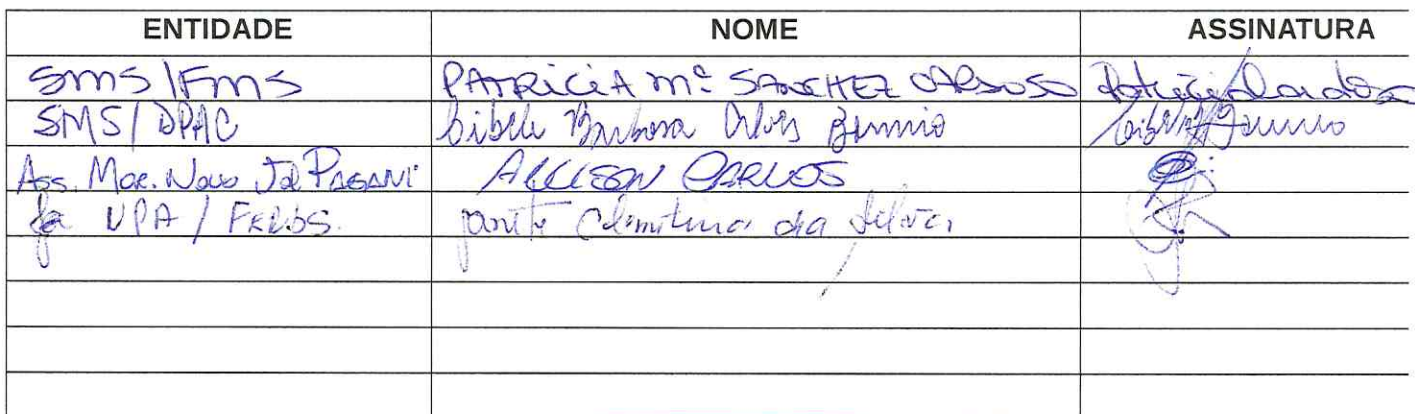 ENTIDADE NOME ASSINATURA
SMS/FMS PATRICIA Mª SANCHEZ CARDOSO Patricia Cardoso
SMS/DPAC Cibele Barbosa Alves
Ass. Mor. Novo Jd PAGANI ALLISON CARLOS
UPA / da Silva